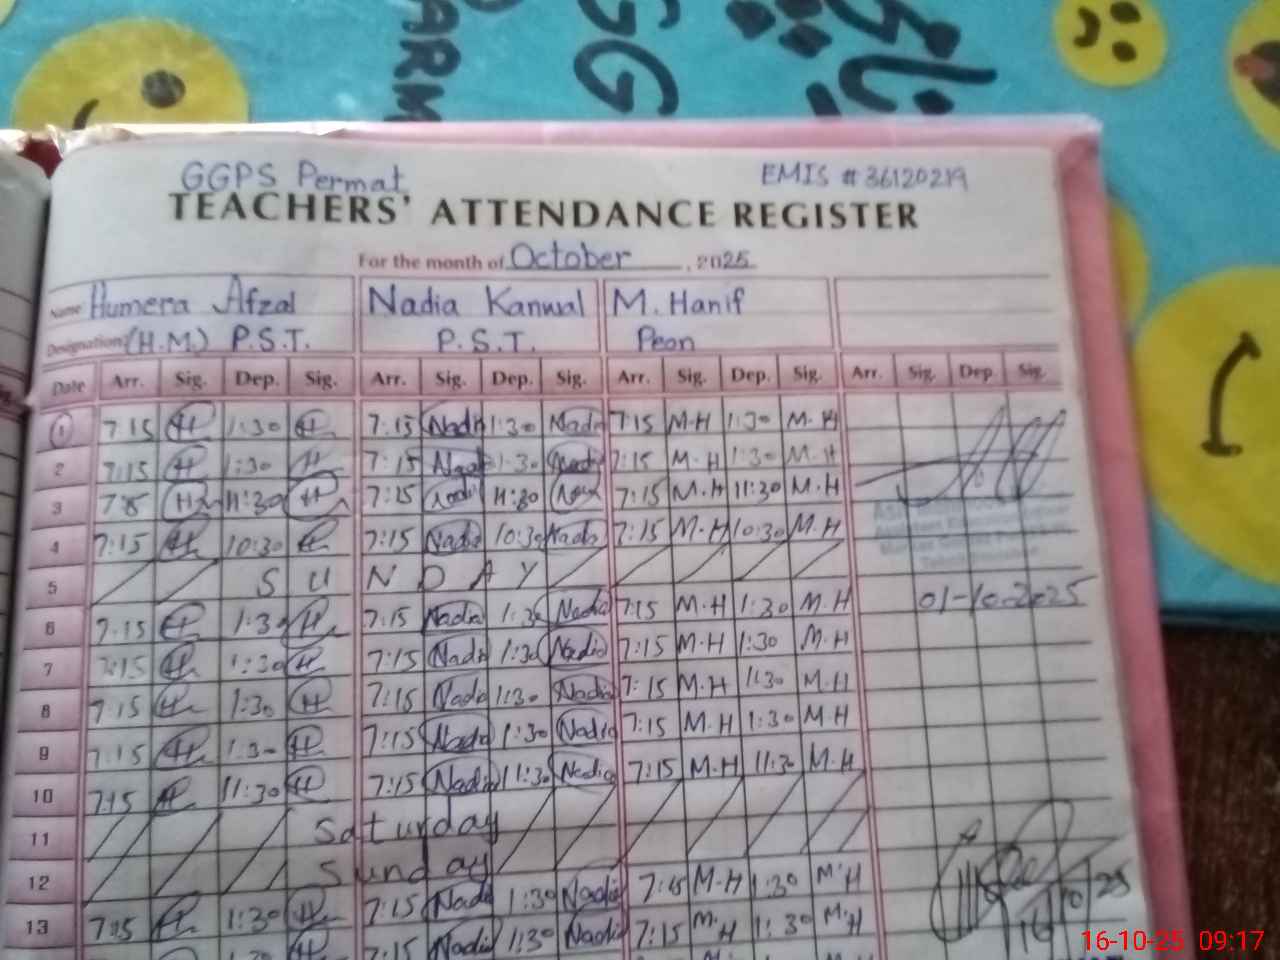 GGPS Permat EMIS # 36120219
TEACHERS' ATTENDANCE REGISTER
For the month of October, 2025
Name: Humera Afzal Nadia Kanwal M. Hanif
Designation: (H.M.) P.S.T. P.S.T. Peon
Date Arr. Sig. Dep. Sig. Arr. Sig. Dep. Sig. Arr. Sig. Dep. Sig. Arr. Sig. Dep. Sig.
1 7:15 H 1:30 H 7:15 Nadia 1:30 Nadia 7:15 M.H 1:30 M.H
2 7:15 H 1:30 H 7:15 1:30 7:15 M.H 1:30 M.H
3 H 11:30 H 7:15 11:30 7:15 M.H 11:30 M.H
4 7:15 H 10:30 H 7:15 Nadia 10:30 Nadia 7:15 M.H 10:30 M.H
5 SUNDAY
01-10-2025
6 7:15 H 1:30 H 7:15 Nadia 1:30 Nadia 7:15 M.H 1:30 M.H
7 7:15 H 1:30 H 7:15 Nadia 1:30 Nadia 7:15 M.H 1:30 M.H
8 7:15 H 1:30 H 7:15 Nadia 1:30 Nadia 7:15 M.H 1:30 M.H
9 7:15 H 1:30 H 7:15 Nadia 1:30 Nadia 7:15 M.H 1:30 M.H
10 7:15 H 11:30 H 7:15 Nadia 11:30 Nadia 7:15 M.H 11:30 M.H
11 Saturday
12 Sunday
16/10/25
13 7:15 H 1:30 H 7:15 Nadia 1:30 Nadia 7:15 M.H 1:30 M.H
7:15 Nadia 1:30 Nadia 7:15 M.H 1:30 M.H
16-10-25 09:17